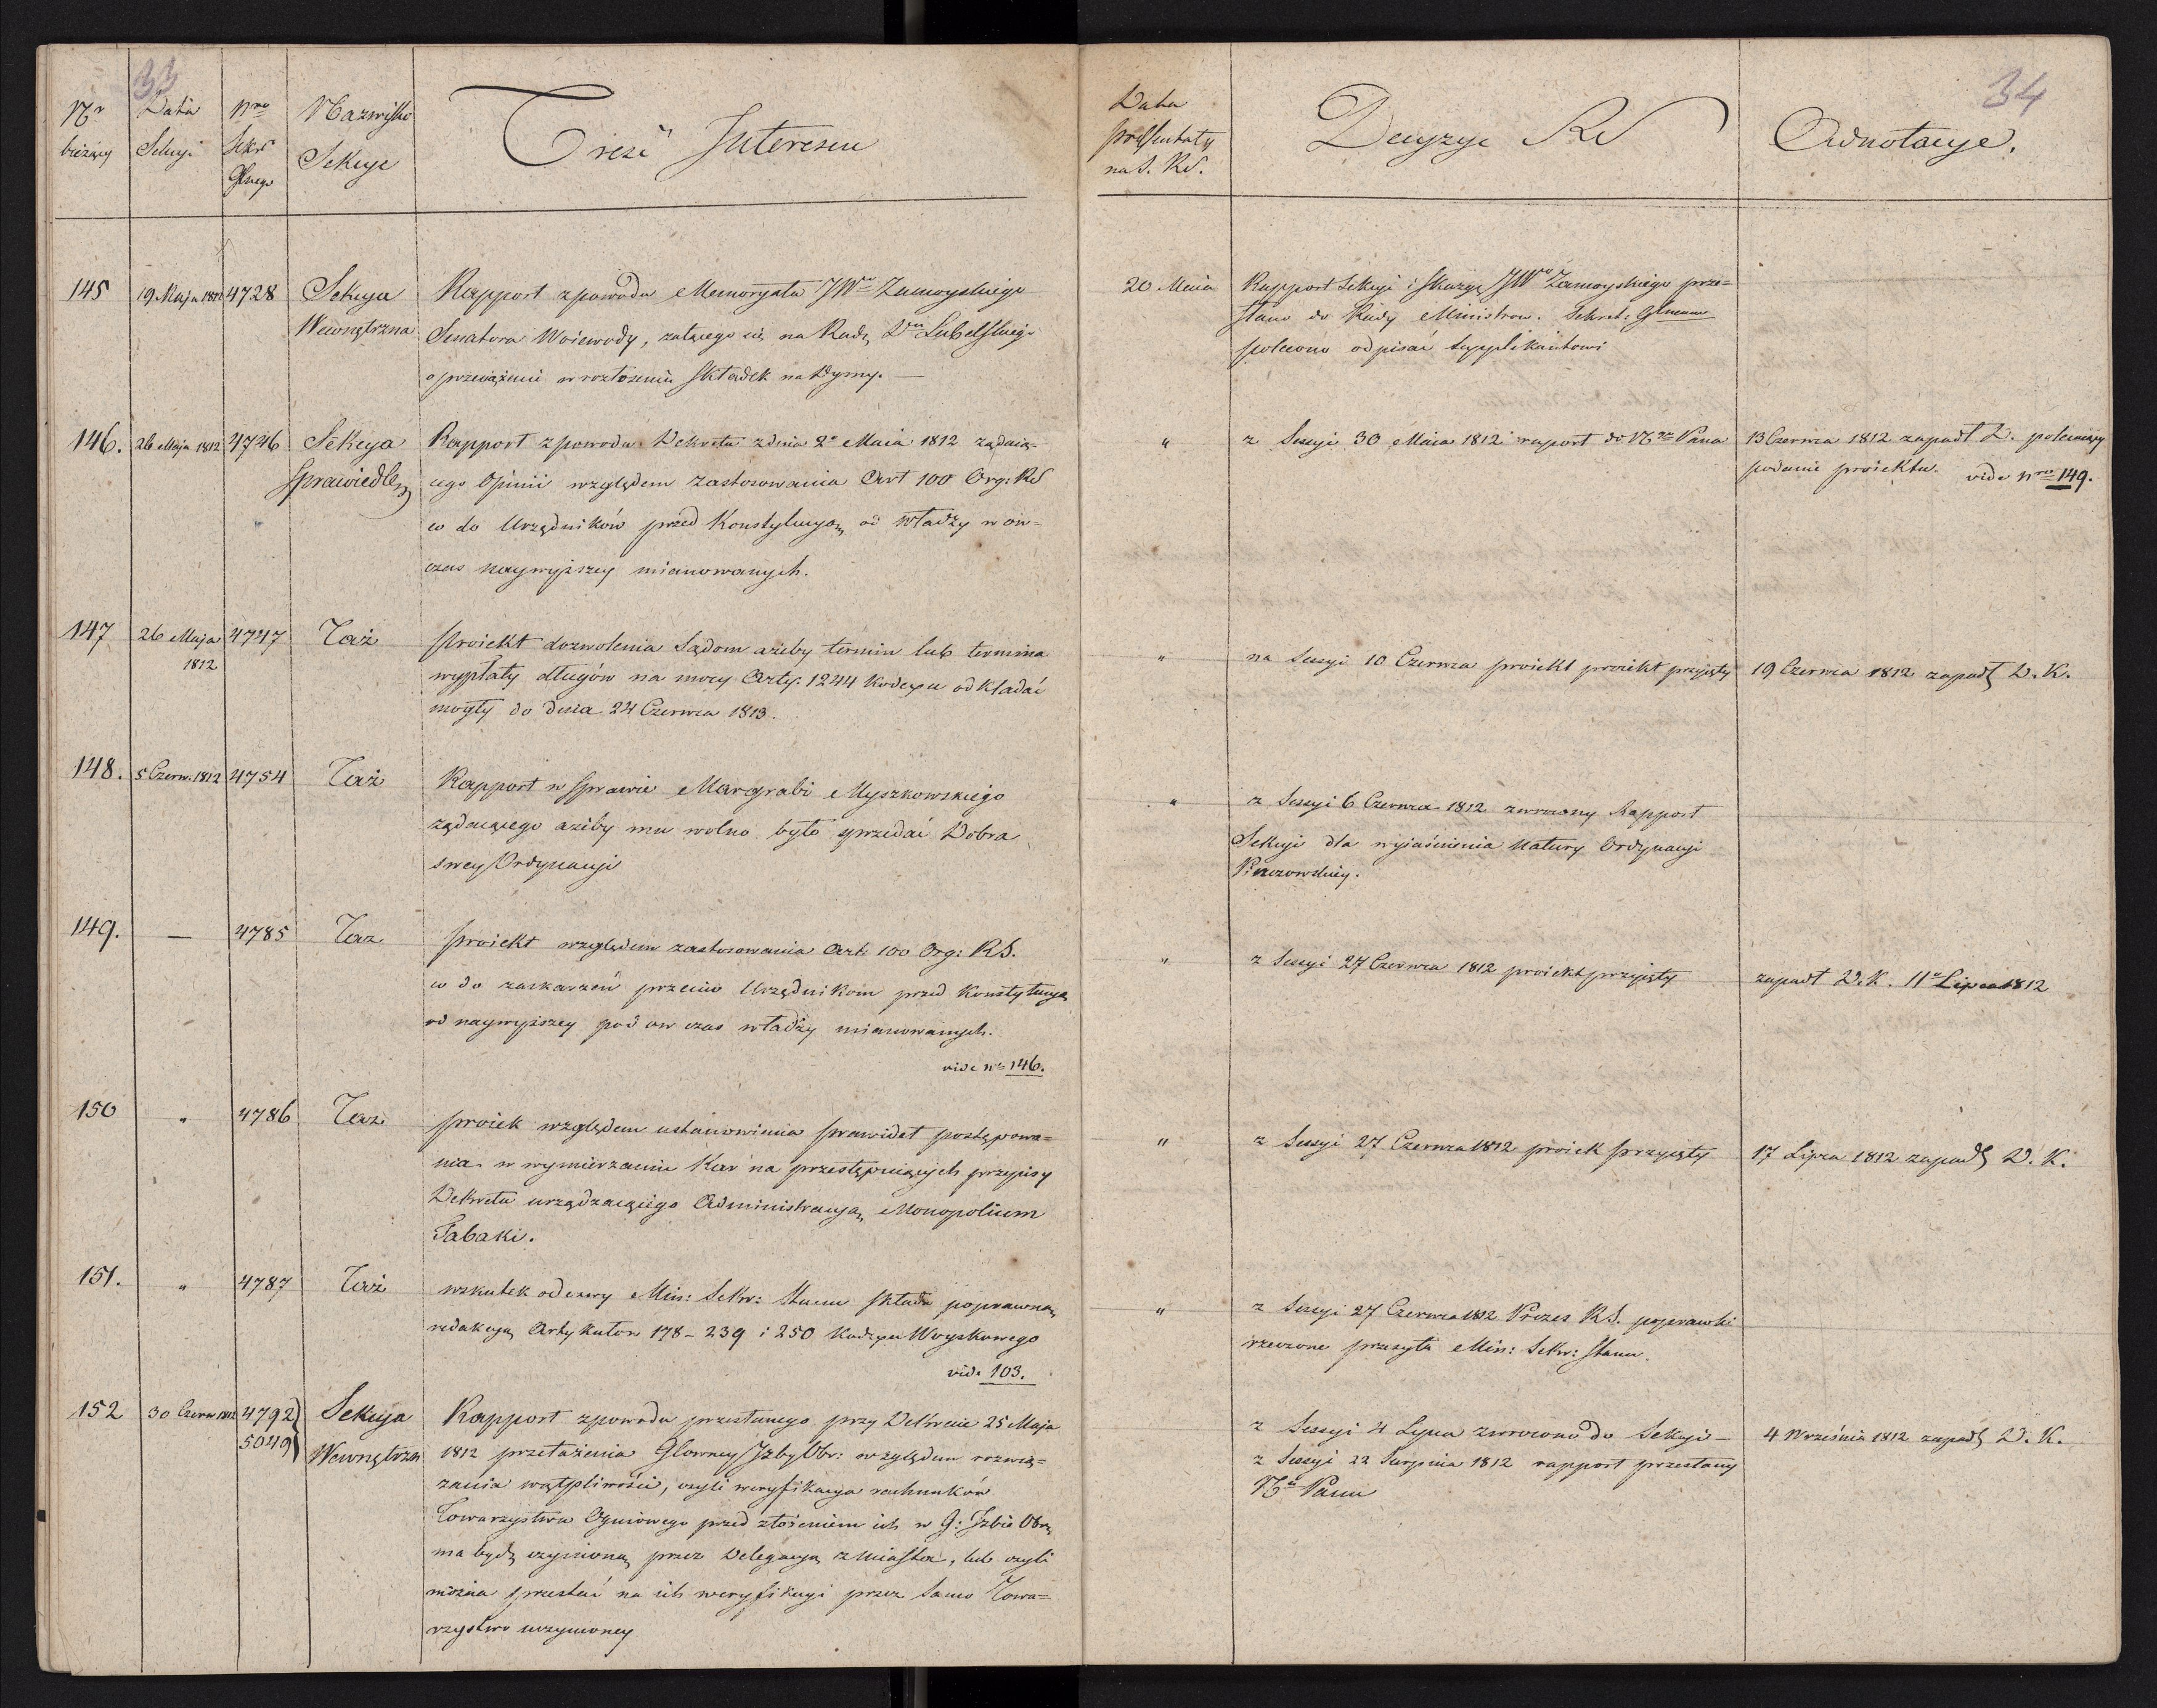 33
34
Nr bieżący
Data Sekcyi
Nro Sekr Głnego
Nazwisko Sekcye
Treść Interesu
Data na S. RS.
Decyzye RS
Adnotacye.
145 19 Maja 1812 4728 Sekcya Wewnętrzna
Rapport z powodu Memoryału JW Zamoyskiego
Senatora Woiewody, żalącego się na Radę Dtu Lubelskiego
o przeciążenie w rozłożeniu składek na dymy. —
20 Maia
Rapport Sekcyi i skargę JW Zamoyskiego prze=
słano do Rady Ministrow. Sekret: Głnemu
polecono odpisać supplikantowi
146. 26 Maja 1812 4746 Sekcya Sprawiedlew
Rapport z powodu Dekretu z dnia 2o Maia 1812 żądaią-
cego Opinii względem zastosowania Art 100 Org: RS
co do Urzędników przed Konstytucyą od władzy w ów-
czas naywyższey mianowanych.
"
z Sessyi 30 Maia 1812 raport do N Pana
13 Czerwca 1812 zapadł D. polecaiący
podanie proiektu. vide Nro 149.
147 26 Maja 1812 4747 Taż
Proiekt dozwolenia Sądom ażeby termin lub termina
wypłaty długów na mocy Arty: 1244 Kodexu odkładać
mogły do dnia 24 Czerwca 1813.
"
na Sessyi 10 Czerwca proiekt proiekt przyięty
19 Czerwca 1812 zapadł D. K.
148. 5 Czerw. 1812 4754 Taż
Rapport w sprawie Margrabi Myszkowskiego
żądaiącego ażeby mu wolno było sprzedać Dobra
swey Ordynacyi
"
z Sessyi 6 Czerwca 1812 zwrócony Rapport
Sekcyi dla wyiaśnienia Natury Ordynacyi
Pinczowskiey.
149. — 4785 Taz
proiekt względem zastosowania Art. 100 Org: RS.
co do zaskarżeń przeciw Urzędnikom przed Konstytucyą
od naywyższey pod ow czas władzy mianowanych.
vide No 146.
"
z Sessyi 27 Czerwca 1812 proiekt przyięty
zapadł D. K. 11o Lipca 1812
150 " 4786 Taz
proiek względem ustanowienia prawideł postępowa=
nia w wymierzaniu Kar na przestępuiących przepisy
Dekretu urządzaiącego Administracyą Monopolium
Tabaki.
"
z Sessyi 27 Czerwca 1812 proiek przyięty
17 Lipca 1812 zapadł D. K.
151. " 4787 Taż
wskutek odezwy Min: Sekr: Stanu składa poprawną
redakcyą Artykułow 178 - 239 i 250 Kodexu Woyskowego
vide 103.
"
z Sessyi 27 Czerwca 1812 Prezes RS. poprawki
rzeczone przesyła Min: Sekr: Stanu.
152 30 Czerw 1812 4792 5049 Sekcya Wewnętrzn
Rapport z powodu przesłanego przy Dekrecie 25 Maja
1812 przełożenia Głowney Izby Obr: względem rozwią=
zania wątpliwości, czyli weryfikacya rachunków
Towarzystwa Ogniowego przed złożeniem ich w G: Izbie Obr.
ma być czynioną przez Delegacyą z miasta, lub czyli
można przestać na ich weryfikacyi przez samo Towa=
rzystwo uczynioney
z Sessyi 4 Lipca zwrocono do Sekcyi —
z Sessyi 22 Sierpnia 1812 rapport przesłany
N Panu
4 Września 1812 zapadł D. K.